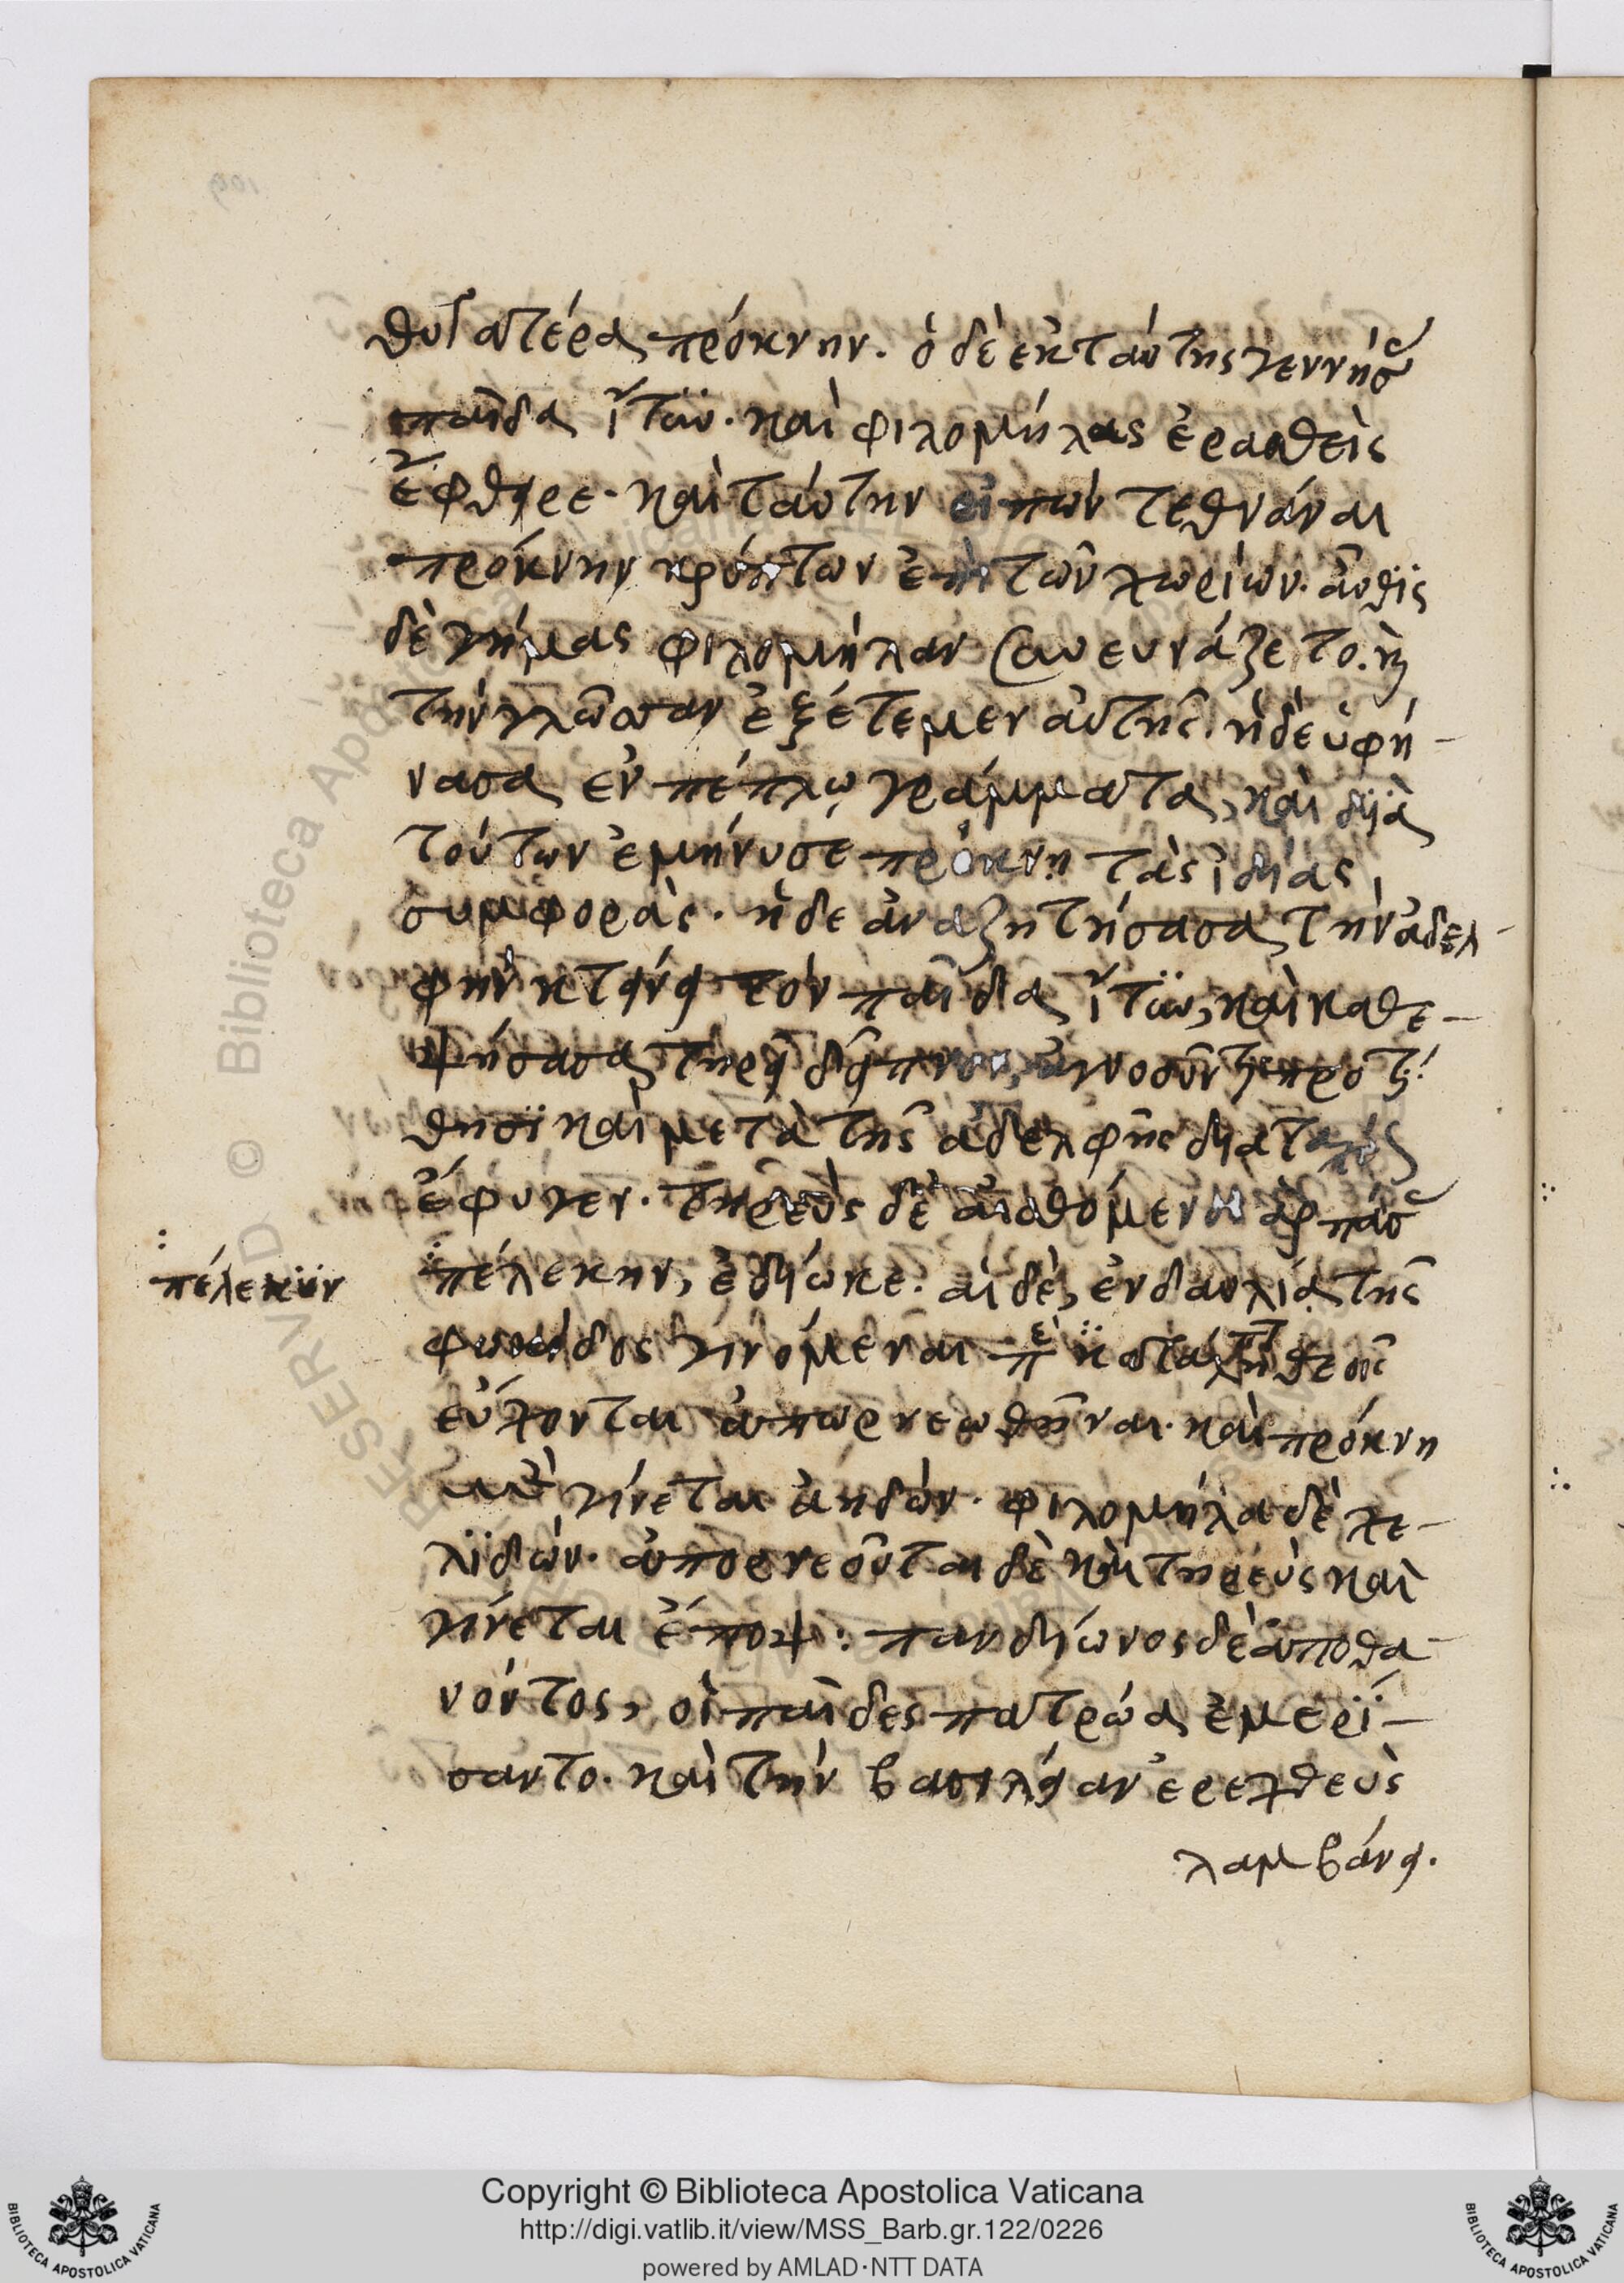 θυγατέρα πρόκνην. ὁ δὲ ἐκ ταύτης γεννήσ
παῖδα ἴτϋν. καὶ φιλομήλας ἐρασθεὶς
ἔφθειρε. καὶ ταύτην εἰπὼν τεθνάναι
πρόκνην κρύπτων ἐπὶ τῶν χωρίων. αὖθϊς
δὲ γήμας φιλομήλαν συνευνάζετο. κ
τὴν γλῶσσαν ἐξέτεμεν αὐτῆς. ἡ δὲ ὑφή-
νασα ἐν πέπλῳ γράμματα, καὶ δϊὰ
τούτων ἐμήνυσε πρόκνῃ τὰς ἰδίας
συμφοράς. ἡ δε ἀναζητήσασα τὴν ἀδελ-
φὴν κτείνει τὸν παῖδα ἴτϋν, καὶ καθε-
ψήσασα τηρεῖ δεῖπνον, ἀγνοοῦντι προτί
θησϊ καὶ μετὰ τῆς ἀδελφῆς διαταχέ
ἔφυγεν. τηρεὺς δὲ αἰσθόμενος ἁρπάσ
πέλεκην, ἐδίωκε. αἱ δὲ, ἐν δαυλίᾳ τῆς
πέλεκϋν
φωκίδος γινόμεναι π κατάληπτ θεοῖς
εὔχονται ἀπωρνεωθῆναι. καὶ πρόκνη
μὲν γίνεται ἀηδών. φιλομήλα δὲ χε-
λϊδών. ἀπορνεοῦται δὲ καὶ τηρεὺς καὶ
γίνεται ἔποψ: πανδίωνος δὲ ἀποθα-
νόντος, οἱ παῖδες πατρῷα ἐμερϊ-
σαντο. καὶ τὴν βασιλείαν ἐρεχθεὺς
λαμβάνει.
Copyright © Biblioteca Apostolica Vaticana
http://digi.vatlib.it/view/MSS_Barb.gr.122/0226
powered by AMLAD·NTT DATA
BIBLIOTECA APOSTOLICA VATICANA
BIBLIOTECA APOSTOLICA VATICANA